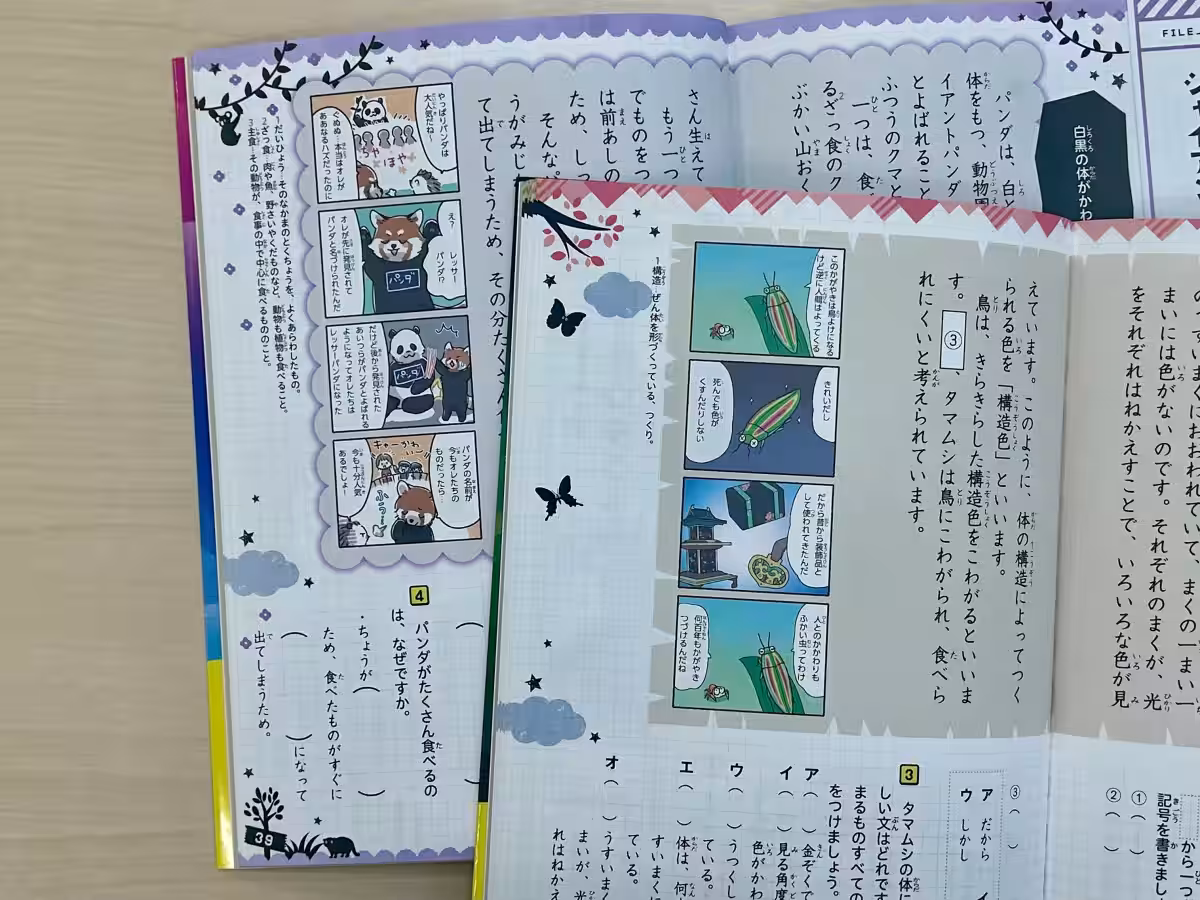 FILE
白黒の体がかわ
パンダは、白と
体をもつ、動物園
イアントパンダ
とよばれること
ふつうのクマと
一つは、食
るざっ食のク
ぶかい山おく
さん生えて
もう一つ
でものを
は前あしの
ため、しっ
そんな
うがみじ
て出てしまうため、その分たくさん
やっぱりパンダは
大人気だね〜
ぐぬぬ…本当はオレが
ああなるハズだったのに
え?
レッサー
パンダ!?
オレが先に発見されて
パンダと名づけられたんだ
パンダ
だけど後から発見された
あいつらがパンダとよばれる
ようになってオレたちは
レッサーパンダになった
パンダ
パンダの名前が
今もオレたちの
ものだったら…
キャーかわいー
ふうーん
今も十分人気
あるでしょー
1だいひょう…そのなかまのとくちょうを、よくあらわしたもの。
2ざっ食…肉や魚、野さいやくだものなど、動物も植物も食べること。
3主食…その動物が、食事の中で中心に食べるもののこと。
4
パンダがたくさん食べるの
は、なぜですか。
・ちょうが（
）
ため、食べたものがすぐに
（　　　）になって
出てしまうため。
39
まいには色がないのです。それぞれのまくが、光
をそれぞれはねかえすことで、いろいろな色が見
えています。このように、体の構造によってつく
られる色を「構造色」といいます。
鳥は、きらきらした構造色をこわがるといいま
す。③、タマムシは鳥にこわがられ、食べら
れにくいと考えられています。
このかがやきは鳥よけになる
けど逆に人間はよってくる
きれいだし
死んでも色が
くすんだりしない
だから昔から装飾品と
して使われてきたんだ
人とのかかわりも
ふかい虫ってわけ
何百年もかがやき
つづけるんだね
1構造…ぜん体を形づくっている、つくり。
から一つ
記号を書きまし
①（　）
②（　）
③（　）
ア だから
ウ しかし
3
タマムシの体に
しい文はどれです
まるものすべての
をつけましょう。
ア（　）金ぞくで
イ（　）見る角度
色がかわ
ウ（　）うつくし
ている。
エ（　）体は、何
すいまくに
ている。
オ（　）うすいまく
まいが、光
れはねかえ